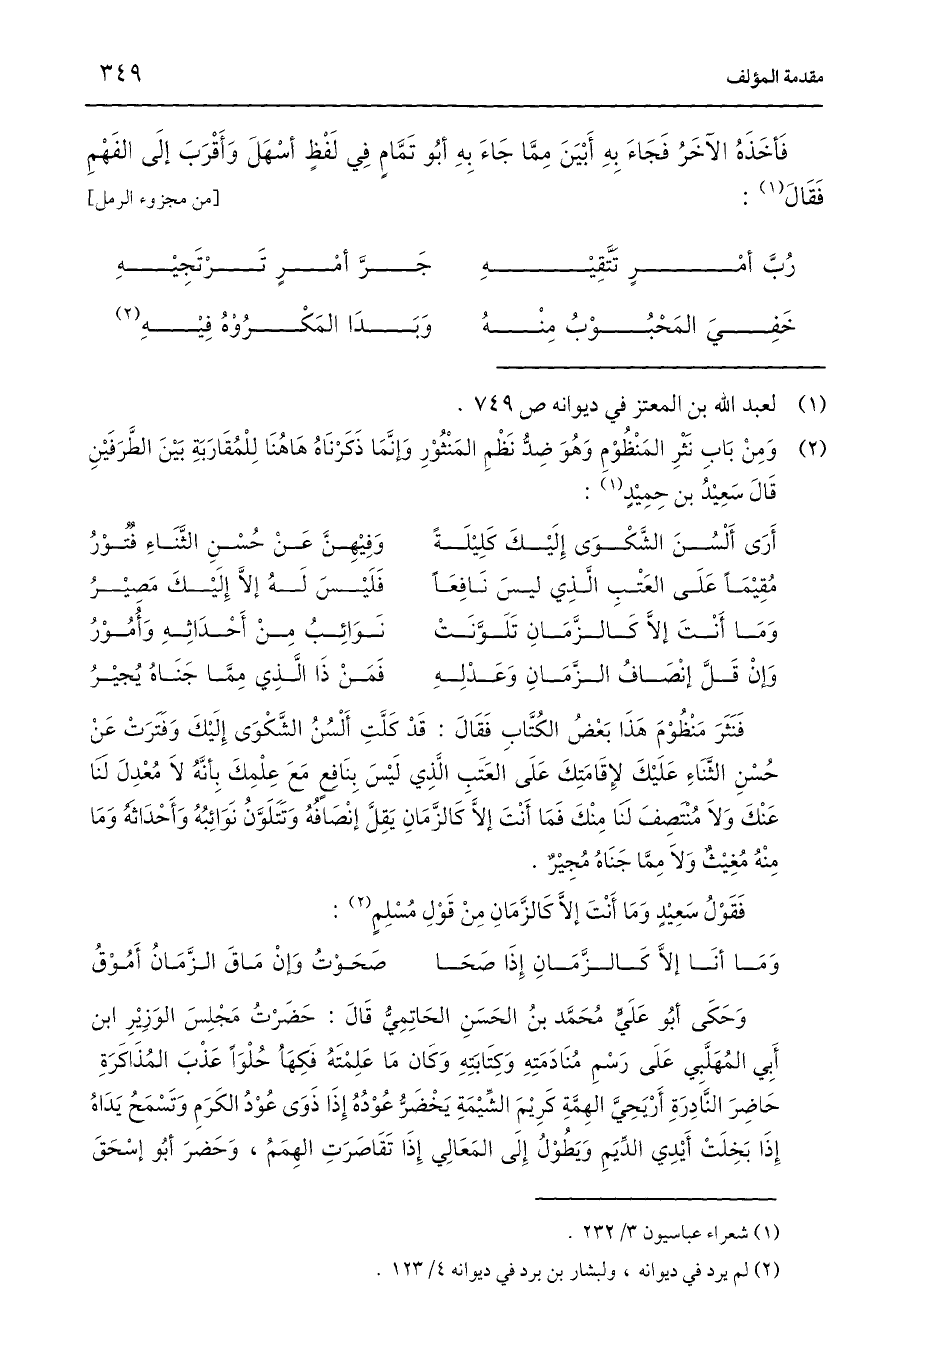 مقدمة المؤلف ٣٤٩
فَأَخَذَهُ الآخَرُ فَجَاءَ بِهِ أَبْيَنَ مِمَّا جَاءَ بِهِ أَبُو تَمَّامٍ فِي لَفْظٍ أسْهَلَ وَأَقْرَبَ إلَى الفَهْمِ
فَقَالَ(١) : [من مجزوء الرمل]
رُبَّ أمْـرٍ تَتَّقِيْـهِ جَـرَّ أمْـرٍ تَـرْتَجِيْـهِ
خَفِـيَ المَحْبُـوْبُ مِنْـهُ وَبَـدَا المَكْـرُوْهُ فِيْـهِ(٢)
(١) لعبد الله بن المعتز في ديوانه ص ٧٤٩ .
(٢) وَمِنْ بَابِ نَثْرِ المَنْظُوْمِ وَهُوَ ضِدُّ نَظْمِ المَنْثُوْرِ وَإنَّمَا ذَكَرْنَاهُ هَاهُنَا لِلْمُقَارَبَةِ بَيْنَ الطَّرَفَيْنِ
قَالَ سَعِيْدُ بن حِمِيْدٍ(١) :
أَرَى أَلْسُـنَ الشَّكْـوَى إلَيْـكَ كَلِيْلَـةً وَفِيْهِـنَّ عَـنْ حُسْـنِ الثَّنَـاءِ فُتُـوْرُ
مُقِيْمَـاً عَلَـى العَتْـبِ الَّـذِي ليـسَ نَـافِعَـاً فَلَيْـسَ لَـهُ إلاَّ إلَيْـكَ مَصِيْـرُ
وَمَـا أَنْـتَ إلاَّ كَـالـزَّمَـانِ تَلَـوَّنَـتْ نَـوَائِـبُ مِـنْ أَحْـدَاثِـهِ وَأُمُـوْرُ
وَإنْ قَـلَّ إنْصَـافُ الـزَّمَـانِ وَعَـدْلِـهِ فَمَـنْ ذَا الَّـذِي مِمَّـا جَنَـاهُ يُجِيْـرُ
فَنَثَرَ مَنْظُوْمَ هَذَا بَعْضُ الكُتَّابِ فَقَالَ : قَدْ كَلَّتِ ألْسُنُ الشَّكْوَى إلَيْكَ وَفَتَرَتْ عَنْ
حُسْنِ الثَّنَاءِ عَلَيْكَ لإقَامَتِكَ عَلَى العَتَبِ الَّذِي لَيْسَ بِنَافِعٍ مَعَ عِلْمِكَ بِأنَّهُ لاَ مُعْدِلَ لَنَا
عَنْكَ وَلاَ مُنْتَصِفَ لَنَا مِنْكَ فَمَا أَنْتَ إلاَّ كَالزَّمَانِ يَقِلَّ إنْصَافُهُ وَتَتَلَوَّنُ نَوَائِبُهُ وَأَحْدَاثهُ وَمَا
مِنْهُ مُغِيْثٌ وَلاَ مِمَّا جَنَاهُ مُجِيْرٌ .
فَقَوْلُ سَعِيْدٍ وَمَا أَنْتَ إلاَّ كَالزَّمَانِ مِنْ قَوْلِ مُسْلِمٍ(٢) :
وَمَـا أنَـا إلاَّ كَـالـزَّمَـانِ إذَا صَحَـا صَحَـوْتُ وَإنْ مَـاقَ الـزَّمَـانُ أَمُـوْقُ
وَحَكَى أَبُو عَلَيٍّ مُحَمَّد بنُ الحَسَنِ الحَاتِمِيُّ قَالَ : حَضَرْتُ مَجْلِسَ الوَزِيْرِ ابن
أَبِي المُهَلَّبِي عَلَى رَسْمِ مُنَادَمَتِهِ وَكِتَابَتِهِ وَكَان مَا عَلِمْتَهُ فَكِهَاً حُلْوَاً عَذْبَ المُذَاكَرَةِ
حَاضِرَ النَّادِرَةِ أَرْيَحِيَّ الهِمَّةِ كَرِيْمَ الشِّيْمَةِ يَخْضَرُّ عُوْدُهُ إذَا ذَوَى عُوْدُ الكَرَمِ وَتَسْمَحُ يَدَاهُ
إذَا بَخِلَتْ أَيْدِي الدِّيَمِ وَيَطُوْلُ إلَى المَعَالِي إذَا تَقَاصَرَتِ الهِمَمُ ، وَحَضرَ أبُو إسْحَقَ
(١) شعراء عباسيون ٣/ ٢٣٢ .
(٢) لم يرد في ديوانه ، ولبشار بن برد في ديوانه ٤/ ١٢٣ .